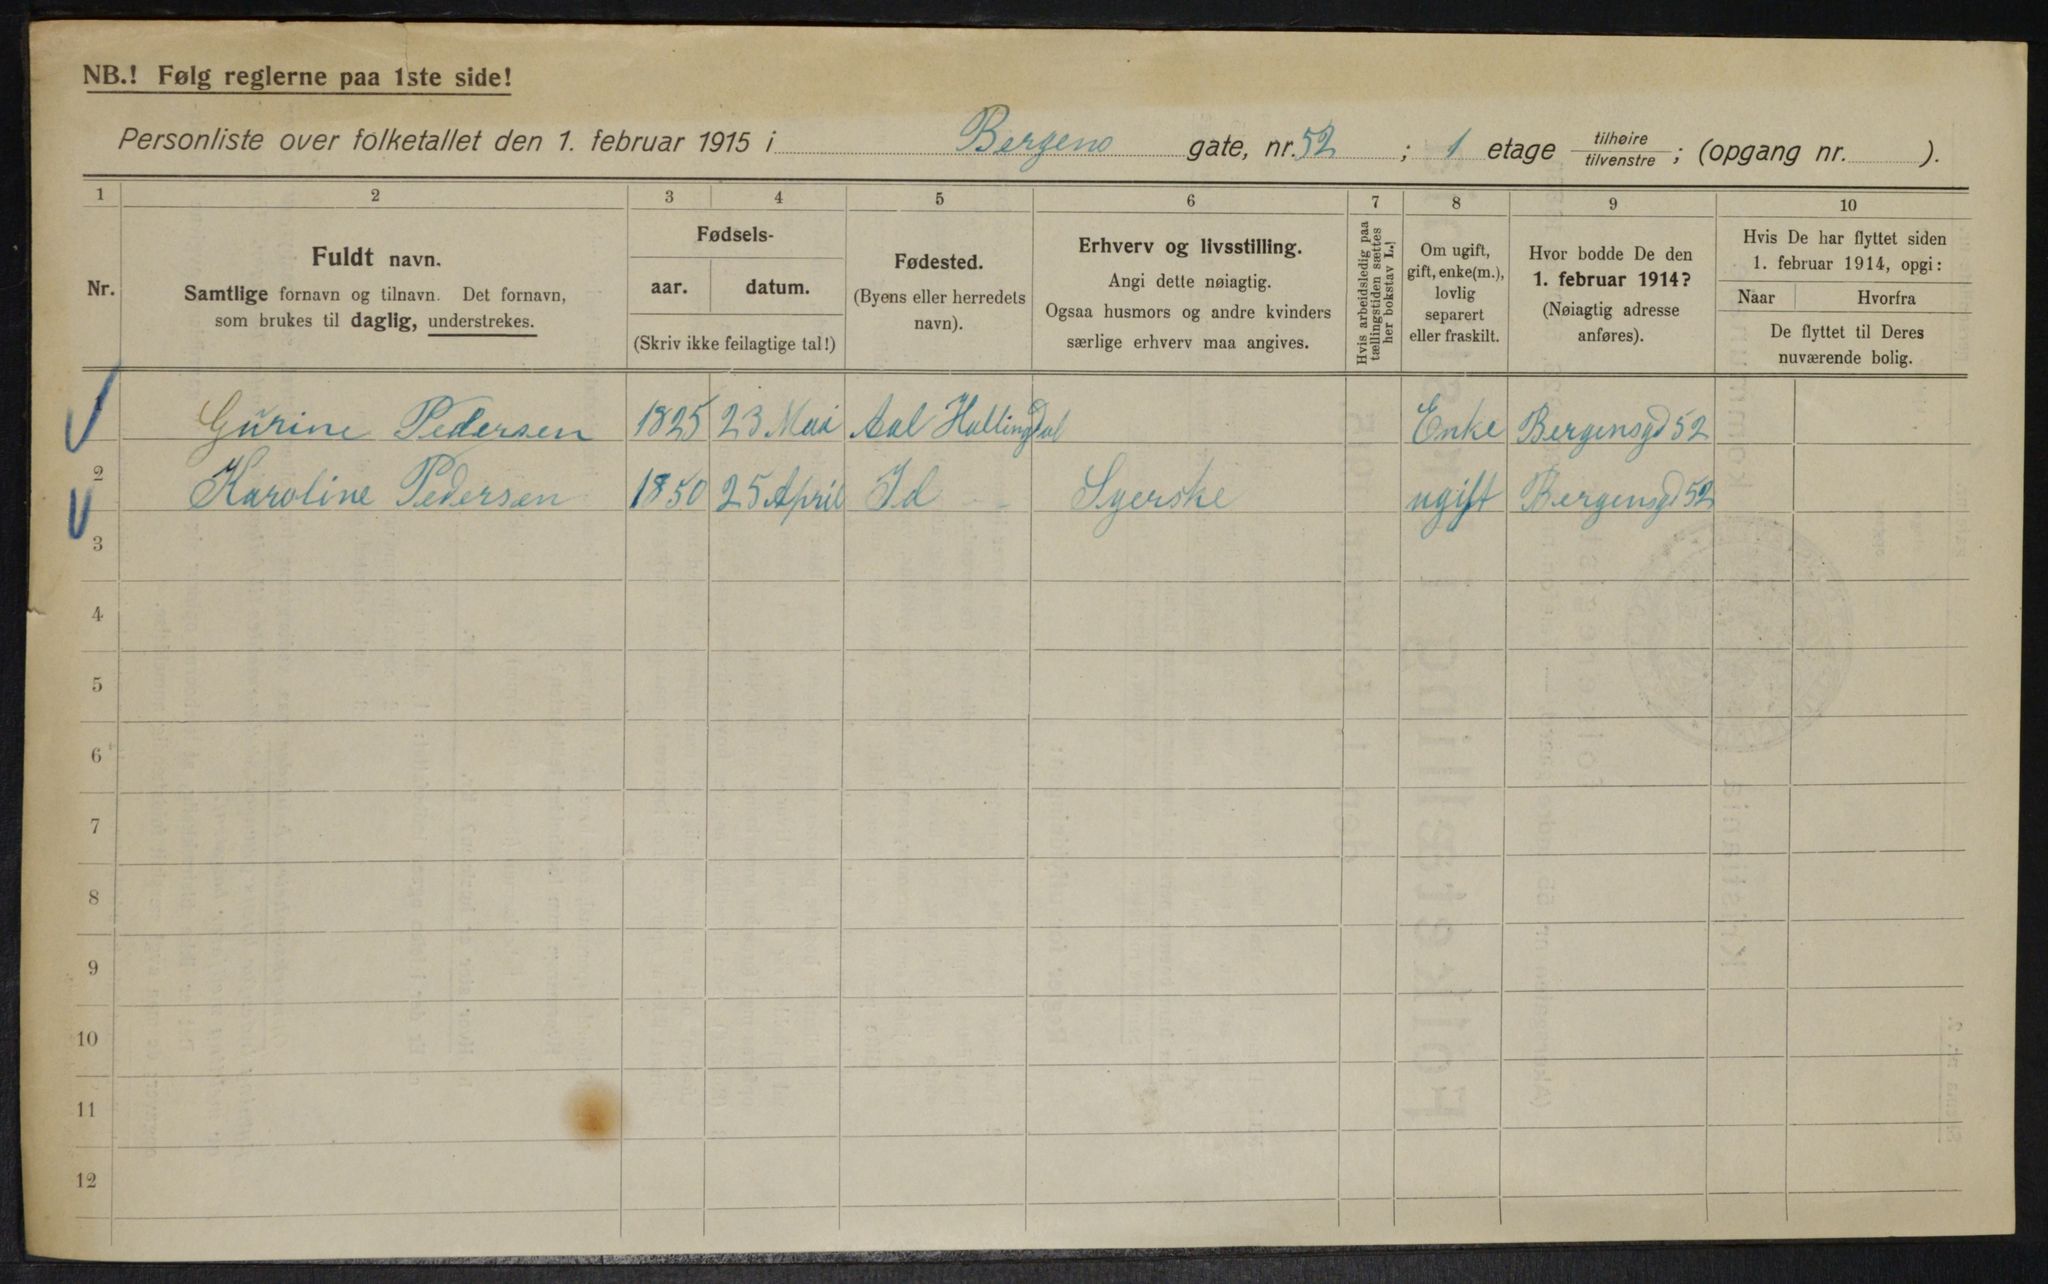 NB.! Følg reglerne paa 1ste side!
Personliste over folketallet den 1. februar 1915 i Bergens gate, nr. 52 ; 1 etage tilhøire/tilvenstre ; (opgang nr. ).
1 2 3 4 5 6 7 8 9 10
Nr.
Fuldt navn.
Samtlige fornavn og tilnavn. Det fornavn,
som brukes til daglig, understrekes.
Fødsels-
aar. datum.
(Skriv ikke feilagtige tal!)
Fødested.
(Byens eller herredets
navn).
Erhverv og livsstilling.
Angi dette nøiagtig.
Ogsaa husmors og andre kvinders
særlige erhverv maa angives.
Hvis arbeidsledig paa
tællingstiden sættes
her bokstav L.!
Om ugift,
gift, enke(m.),
lovlig
separert
eller fraskilt.
Hvor bodde De den
1. februar 1914?
(Nøiagtig adresse
anføres).
Hvis De har flyttet siden
1. februar 1914, opgi:
Naar Hvorfra
De flyttet til Deres
nuværende bolig.
Gurine Pedersen 1825 23 Mai Aal Hallingdal Enke Bergensgd 52
2 Karoline Pedersen 1850 25 April Id Syerske ugift Bergensgd 52
3
4
5
6
7
8
9
10
11
12